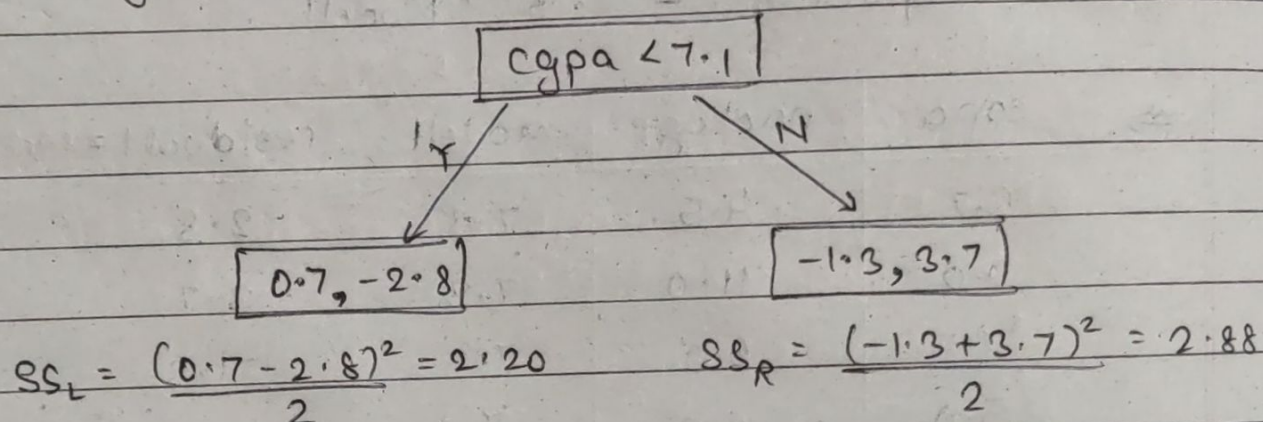 cgpa < 7.1
Y N
0.7, -2.8 -1.3, 3.7
SS_L = (0.7 - 2.8)² / 2 = 2.20 SS_R = (-1.3 + 3.7)² / 2 = 2.88